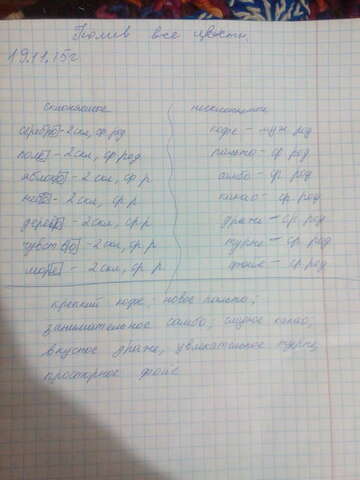 Полив все цветы
19.11.15г
склоняемые несклоняемые
серебро - 2 скл, ср.род кофе - муж. род
поле - 2 скл, ср.род пальто - ср. род
яблоко - 2 скл, ср.р самбо - ср. род
небо - 2 скл, ср.р какао - ср. род
дерево - 2 скл, ср.р драже - ср. род
чувство - 2 скл, ср.р турне - ср. род
море - 2 скл, ср.р фойе - ср. род
крепкий кофе; новое пальто;
занимательное самбо; какао;
вкусное драже, увлекательное турне,
просторное фойе